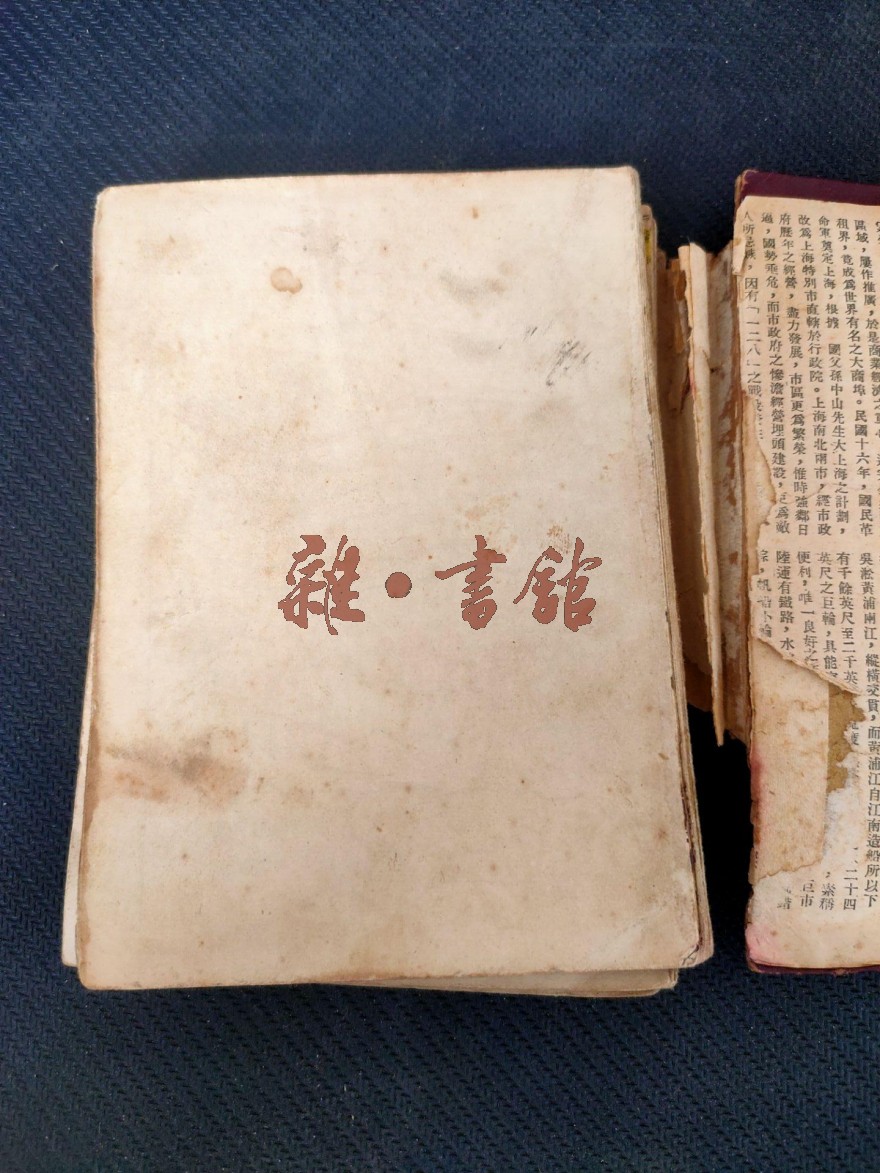 雜·書館
區域，屢作推廣，於是商業經濟之重
租界，竟成爲世界有名之大商埠。民國十六年，國民革
命軍奠定上海，根據　國父孫中山先生大上海之計劃，
改爲上海特別市直轄於行政院。上海南北兩市，經市政
府歷年之經營，盡力發展，市區更爲繁榮，惟時強鄰日
逼，國勢垂危，而市政府之慘澹經營埋頭建設，更爲敵
人所忌嫉，因有「一二八」之戰
吳淞黃浦兩江，縱橫交貫，而黃浦江自江南造船所以下
有千餘英尺至二千英 二十四
英尺之巨輪，具能 ，素稱
便利，唯一良好之 巨市
陸運有鐵路，水